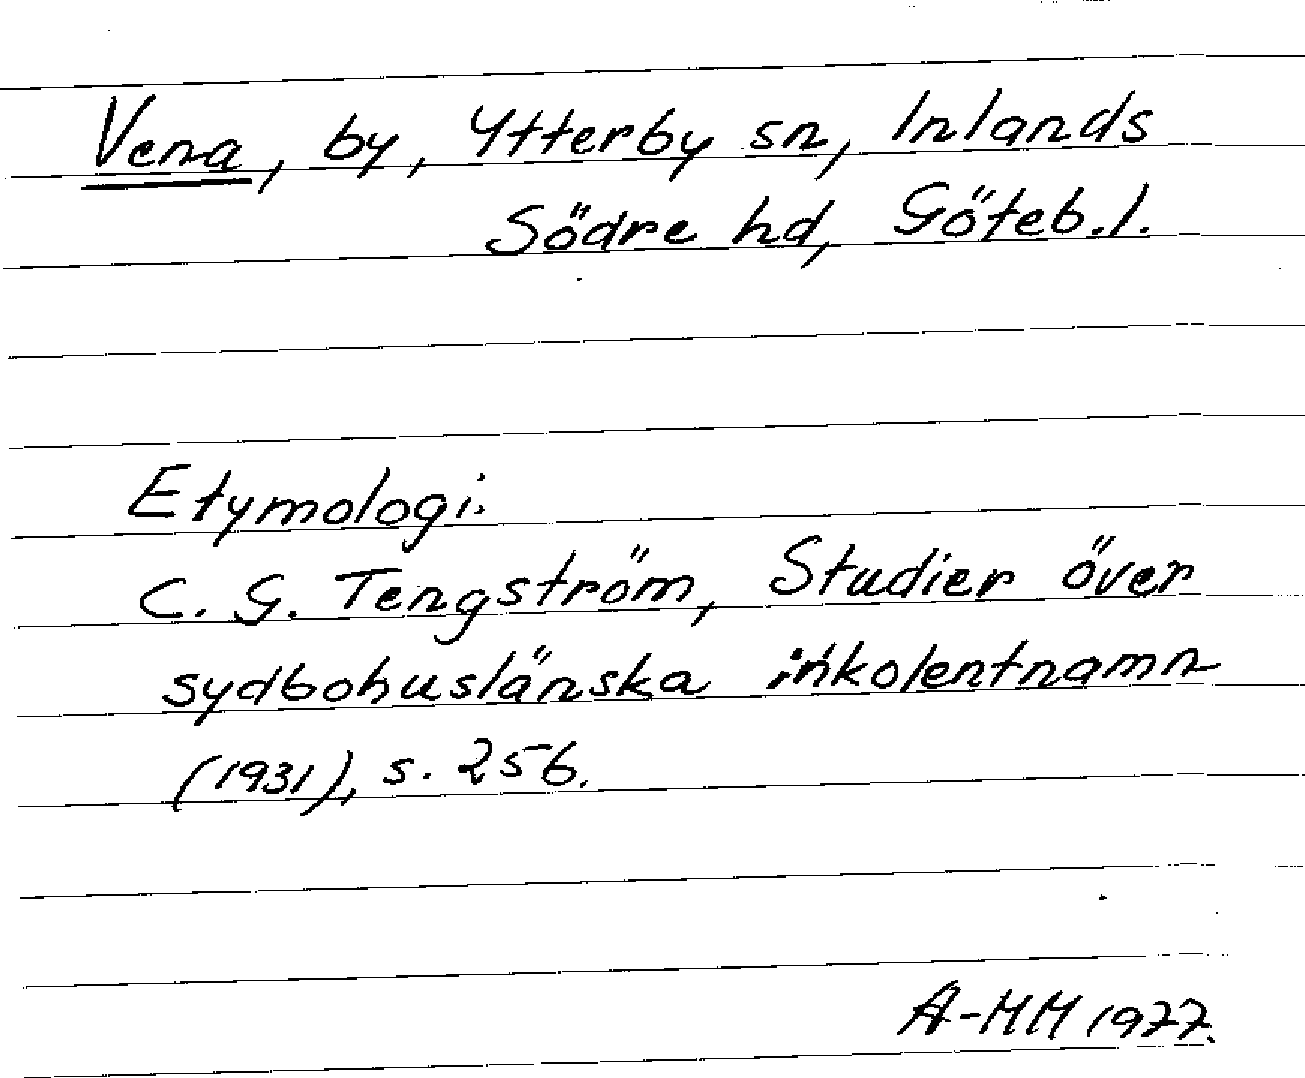 Vena, by, Ytterby sn, Inlands
Södre hd, Göteb.l.
Etymologi:
C. G. Tengström, Studier över
sydbohuslänska inkolentnamn
(1931), s. 256.
A-MM 1977.